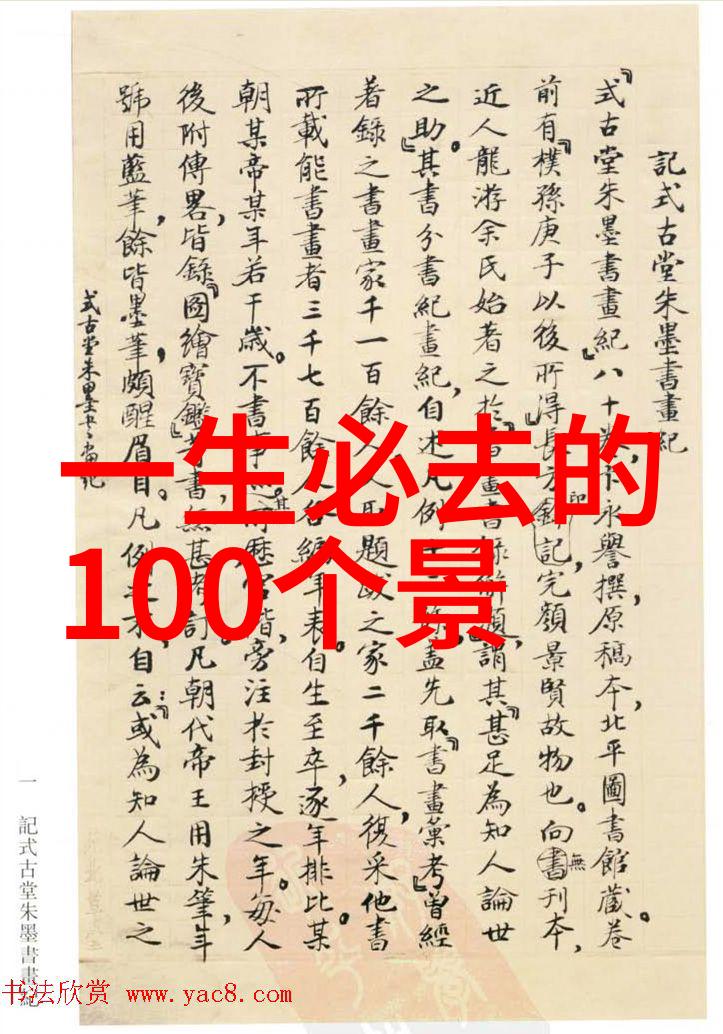 記式古堂朱墨書畫紀
『式古堂朱墨書畫紀』八十卷，卞永譽撰，原稿本，北平圖書館藏。卷
前有『樸孫庚子以後所得』長方印記，完顏景賢故物也。向無刊本，
近人龍游余氏始著之於『書畫書錄解題』，謂其『甚足為知人論世
之助』。其書分書紀畫紀，自述凡例十二條，蓋先取『書畫彙考』曾經
著錄之書畫家千一百餘人，及題跋之家二千餘人，復采他書
所載能書畫者三千七百餘人，各編年表。自生至卒，逐年排比某
朝某帝某年若干歲。不書事，其官階，旁注於封授之年。每人
後附傳畧，皆錄『圖繪寶鑑』等書，無甚考訂。凡朝代帝王用朱筆，年
號用藍筆，餘皆墨筆，頗醒眉目。凡例之末，自云：『或為知人論世之
式古堂朱墨書畫紀
一
記式古堂朱墨書畫紀
一生必去的
100个景
书法欣赏 www.yac8.com